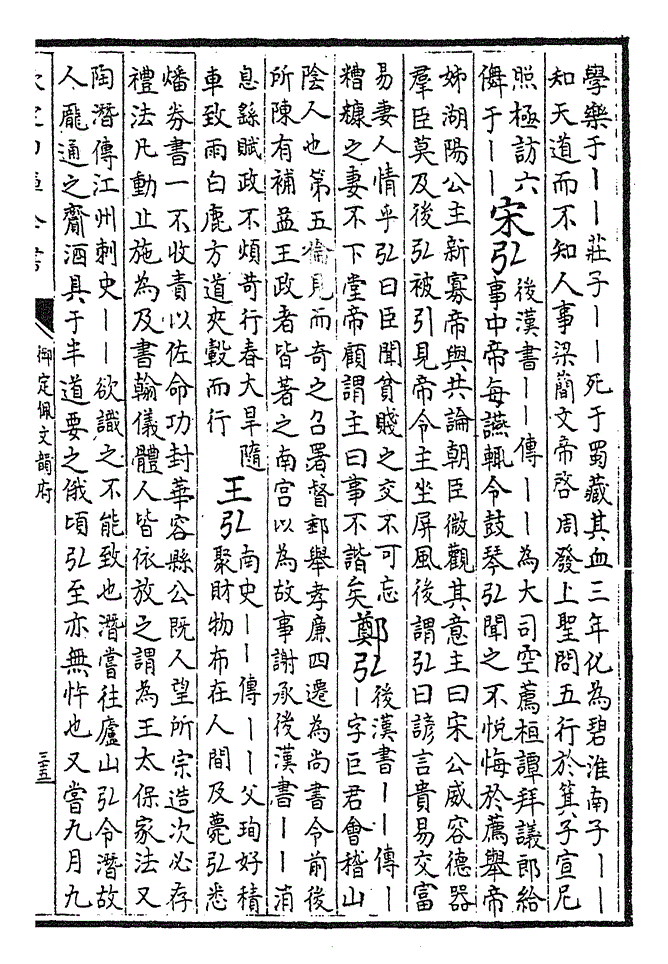 學樂于丨丨莊子丨丨死于蜀藏其血三年化為碧淮南子丨丨
知天道而不知人事梁簡文帝啓周發上聖問五行於箕子宣尼
照極訪六
儛于丨丨
宋弘
後漢書丨丨傳丨丨為大司空薦桓譚拜議郎給
事中帝每讌輒令鼓琴弘聞之不悅悔於薦舉帝
姊湖陽公主新寡帝與共論朝臣微觀其意主曰宋公威容德器
羣臣莫及後弘被引見帝令主坐屏風後謂弘曰諺言貴易交富
易妻人情乎弘曰臣聞貧賤之交不可忘
糟糠之妻不下堂帝顧謂主曰事不諧矣
鄭弘
後漢書丨丨傳丨
丨字巨君會稽山
陰人也第五倫見而奇之召署督郵舉孝廉四遷為尚書令前後
所陳有補益王政者皆著之南宮以為故事謝承後漢書丨丨消
息繇賦政不煩苛行春大旱隨
車致雨白鹿方道夾轂而行
王弘
南史丨丨傳丨丨父珣好積
聚財物布在人間及薨弘悉
燔券書一不收責以佐命功封華容縣公既人望所宗造次必存
禮法凡動止施為及書翰儀體人皆依放之謂為王太保家法又
陶潛傳江州刺史丨丨欲識之不能致也潛嘗往廬山弘令潛故
人龐通之齎酒具于半道要之俄頃弘至亦無忤也又嘗九月九
御定佩文韻府
三五